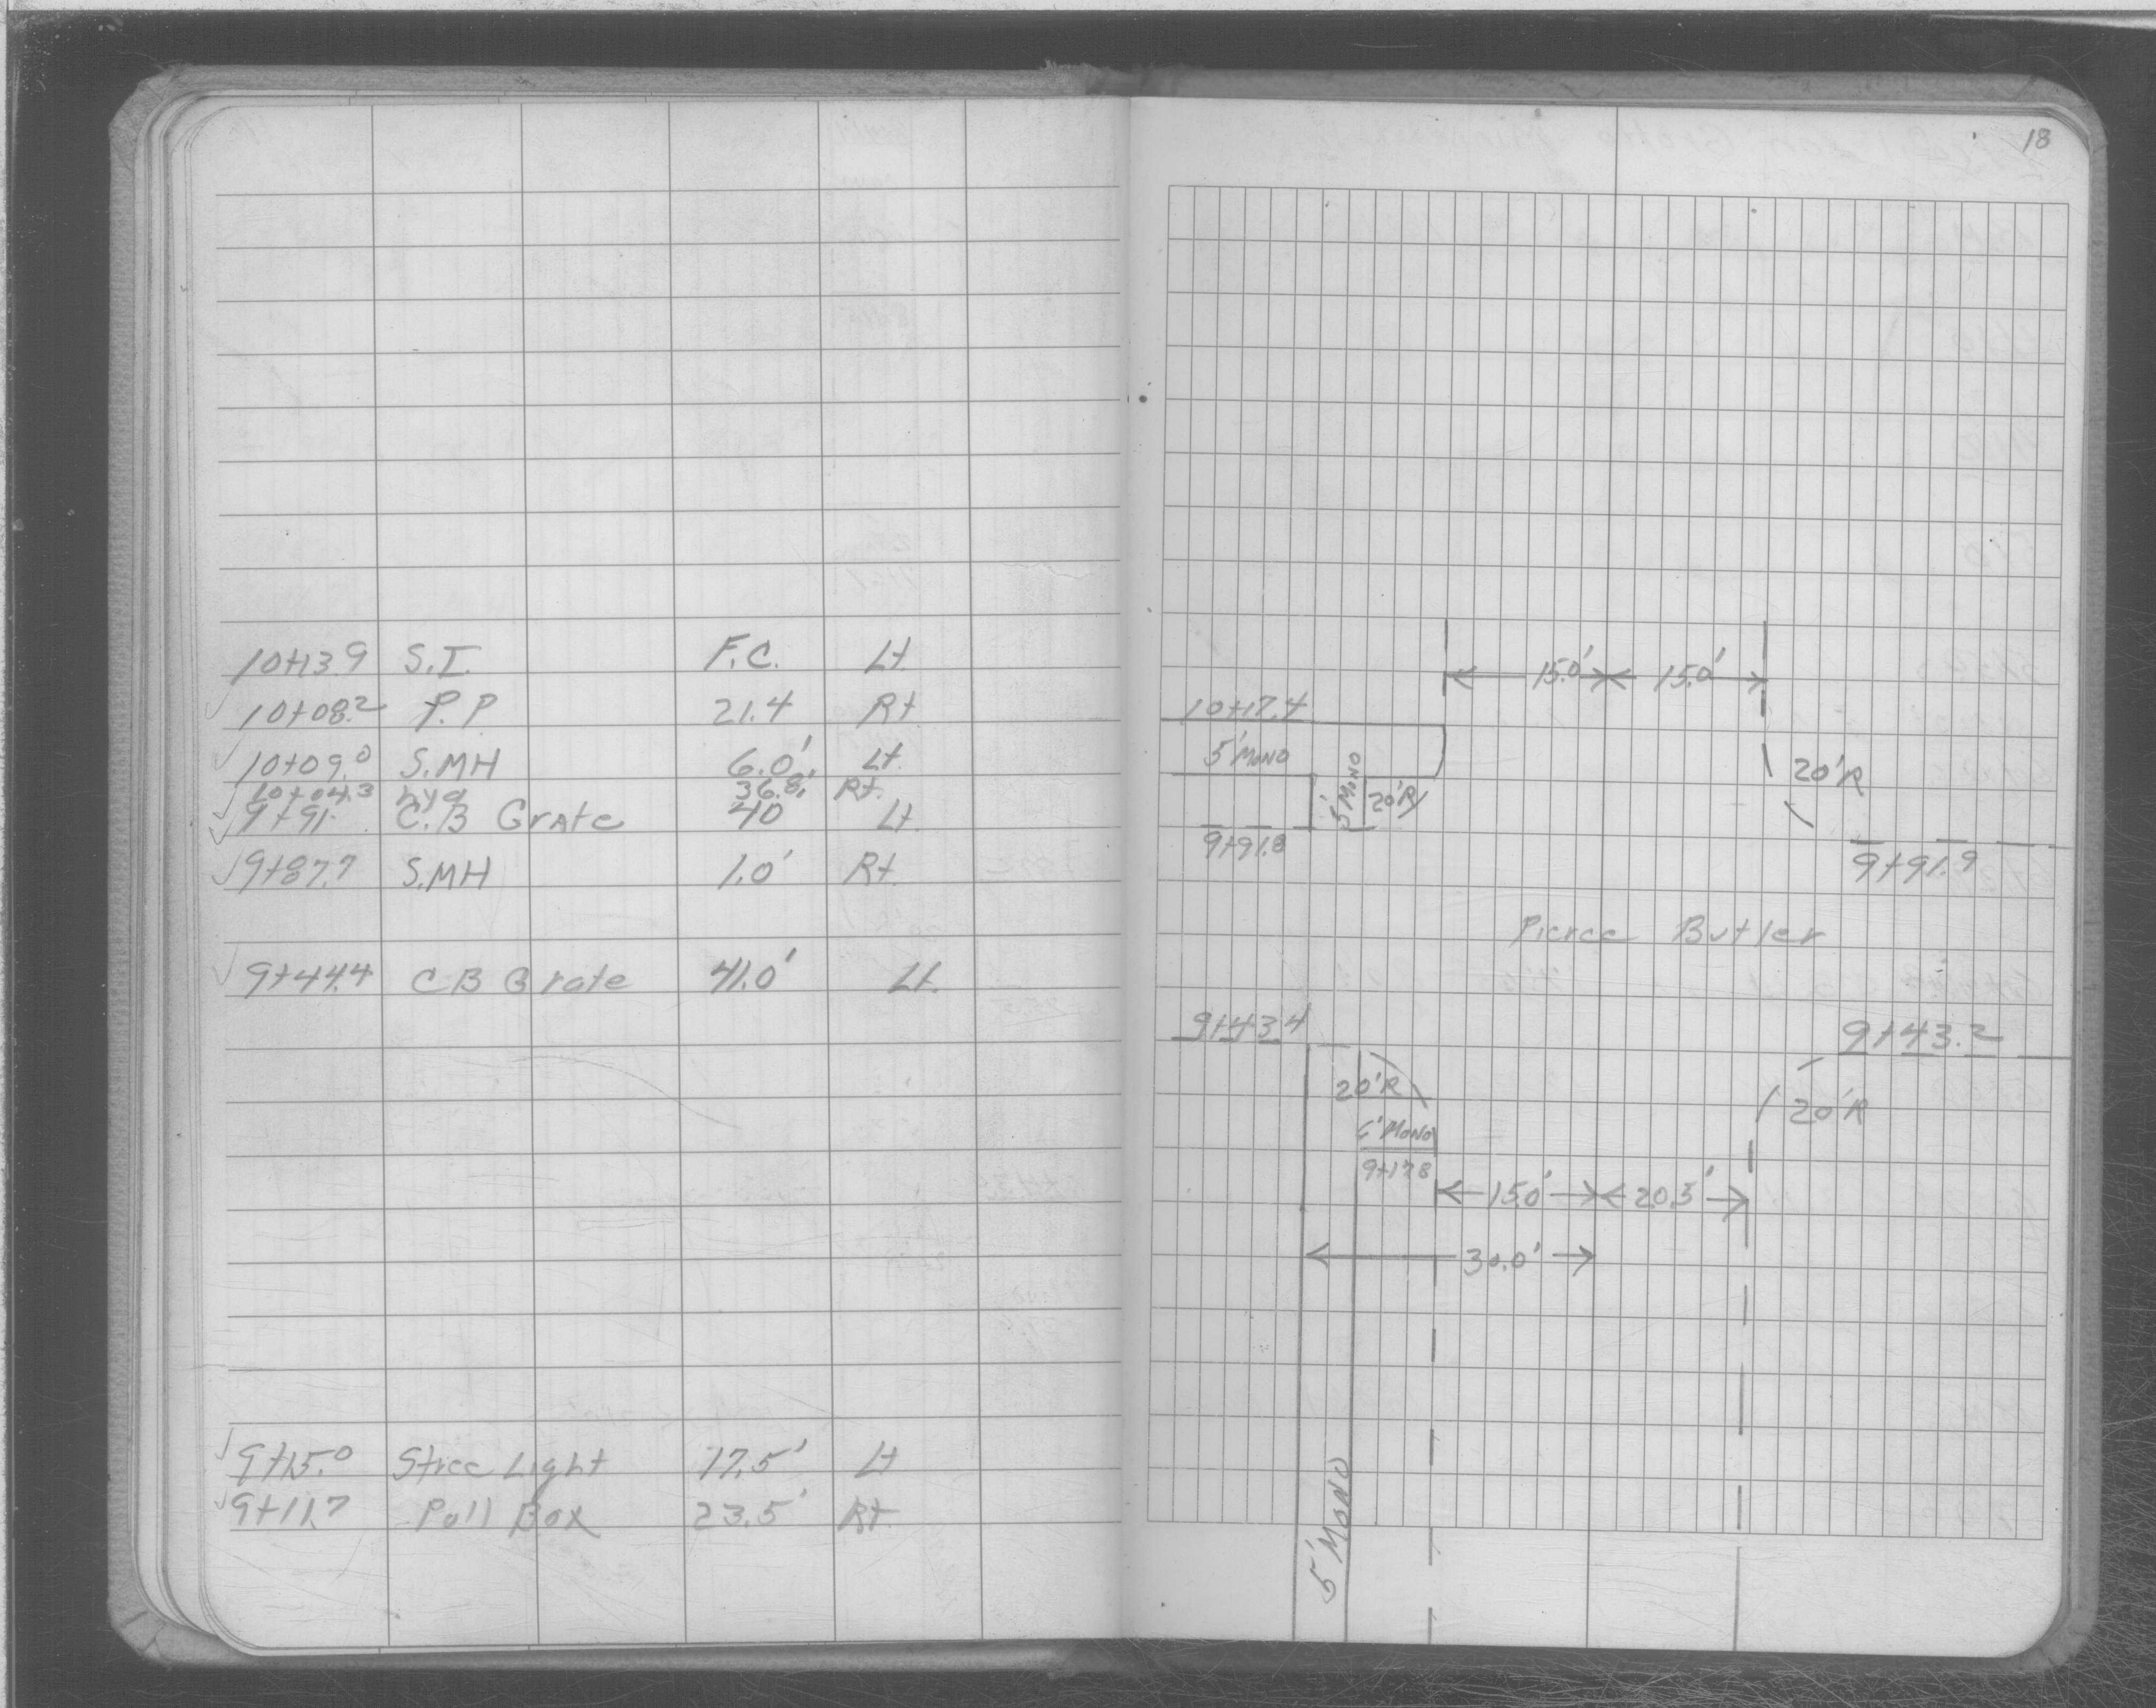 18
10+13.9 S.I. F.C. Lt
10+08.2 P.P 21.4 Rt
10+09.0 S.MH 6.0' Lt.
10+04.3 hyd 36.8' Rt.
9+91. C.B Grate 40' Lt
9+87.7 S.MH 1.0' Rt.
9+44.4 CB Grate 41.0' Lt.
9+15.0 Stree Light 17.5' Lt
9+11.7 Pull Box 23.5' Rt
15.0' 15.0'
10+17.4
5' MONO
5' MONO
20'R
20'R
9+91.8
9+91.9
Pierce Butler
9+43.4
9+43.2
20'R
20'R
MONO
9+17.8
15.0' 20.5'
30.0'
5' MONO